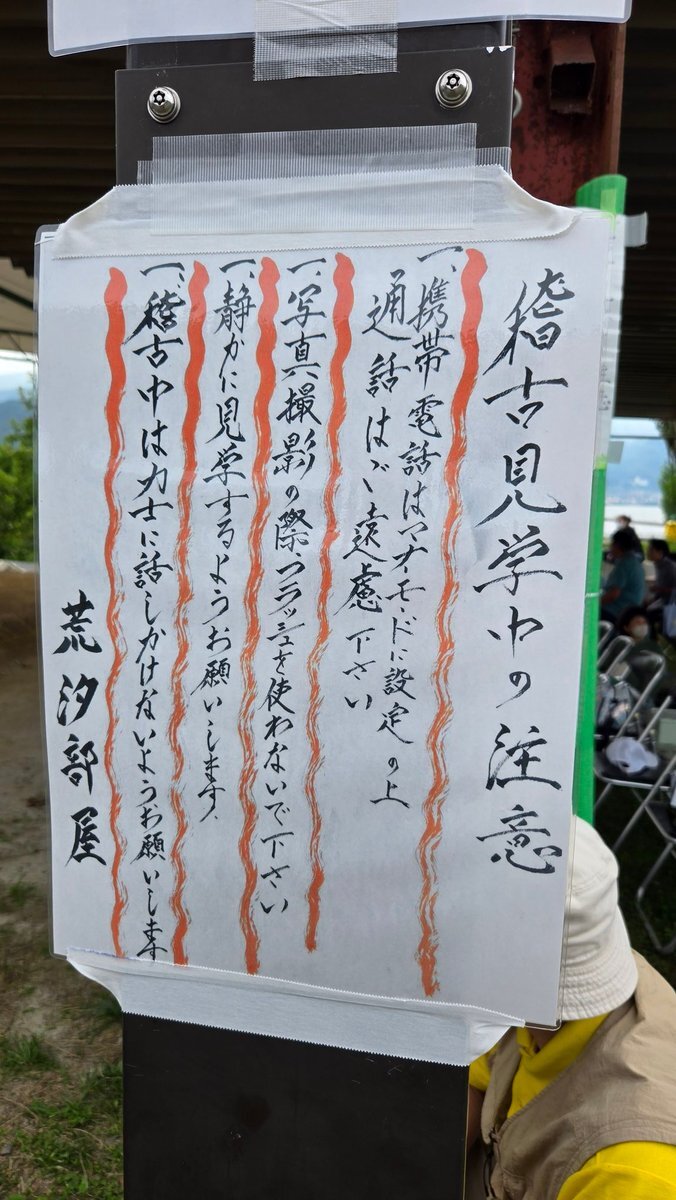 稽古見学中の注意
一、携帯電話はマナーモードに設定の上
通話はご遠慮下さい
一、写真撮影の際、フラッシュを使わないで下さい
一、静かに見学するようお願いします。
一、稽古中は力士に話しかけないようお願いします
荒汐部屋